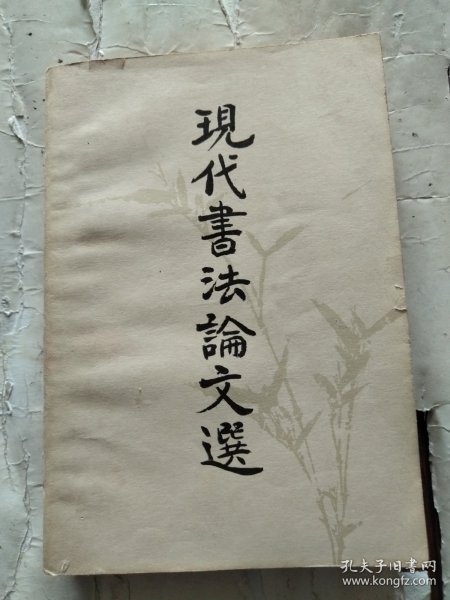 現代書法論文選
孔夫子旧书网
www.kongfz.com